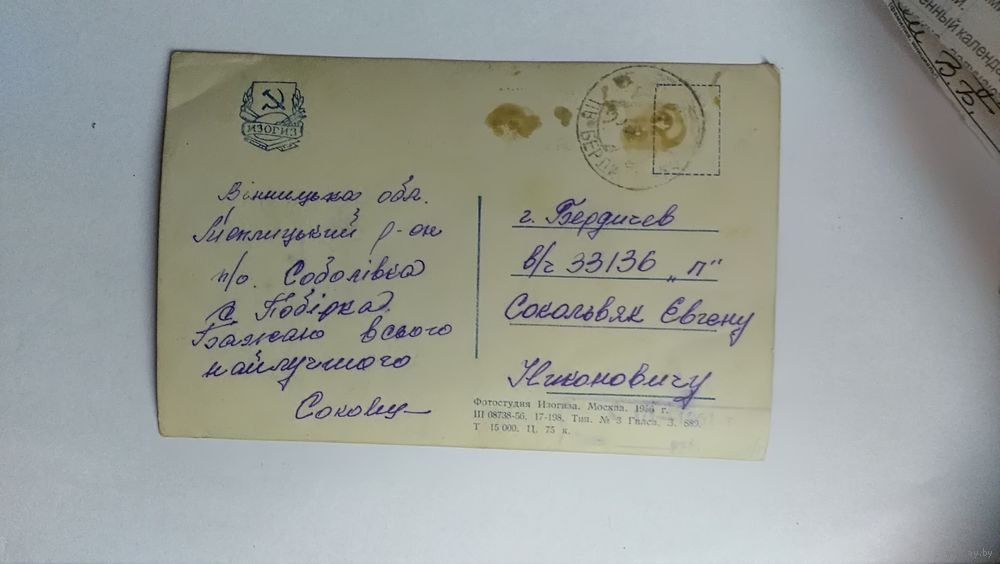 ИЗОГИЗ
Вінницька обл.
р-он
п/о. Соболівка
с. Побірка.
Бажаю всього
найлучшого
г. Бердичев
в/ч 33136 „п“
Сокольвяк Євгену
Никоновичу
Фотостудия Изогиза. Москва. 1956 г.
Ш 08738-56. 17-198. Тип. № 3 Гилса. З. 889.
Т 15 000. Ц. 75 к.